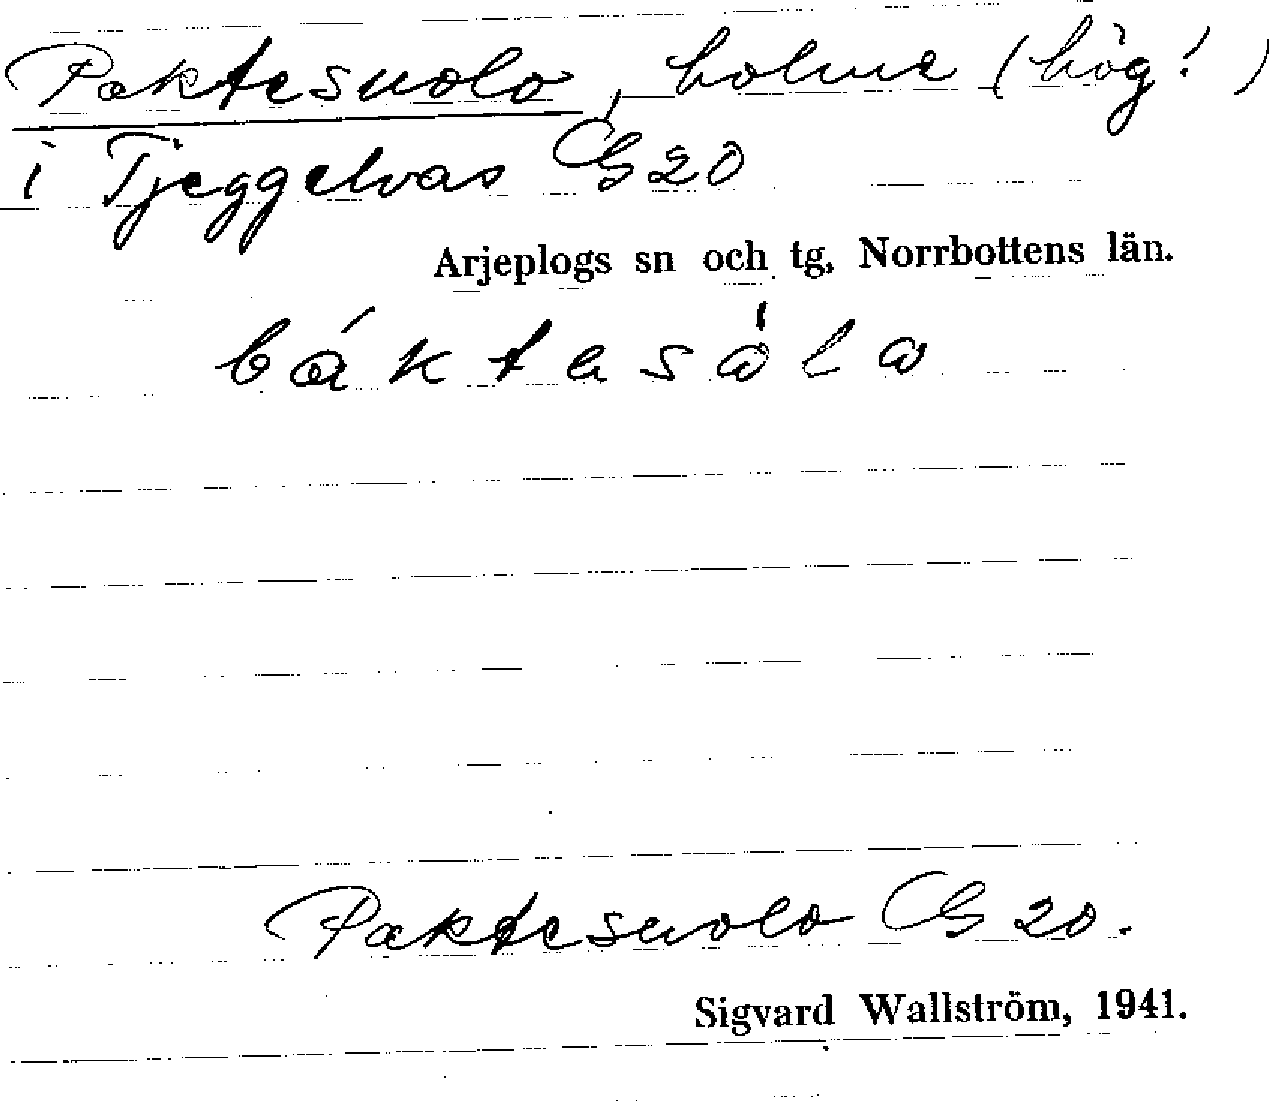 Paktesuolo, holme (hög!)
i Tjeggelvas GS 20
Arjeplogs sn och tg, Norrbottens län.
báktaså̀la
Paktesuolo GS 20.
Sigvard Wallström, 1941.